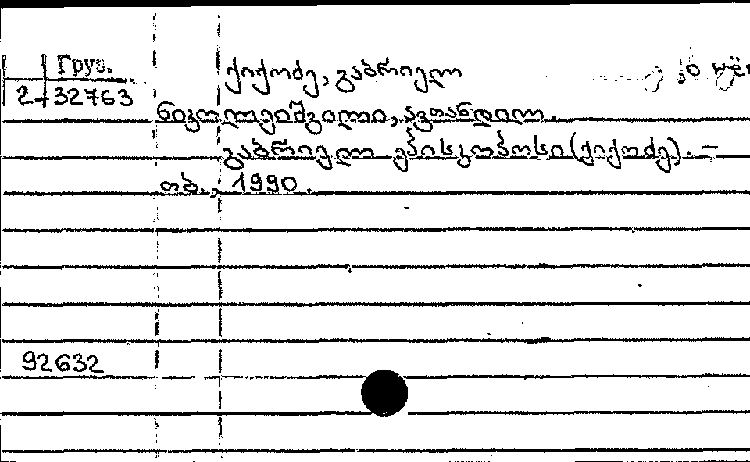 Груз.
ქიქოძე, გაბრიელ
2-32763
ნიკოლეიშვილი, ავთანდილ.
გაბრიელ ეპისკოპოსი (ქიქოძე). –
თბ., 1990.
92632